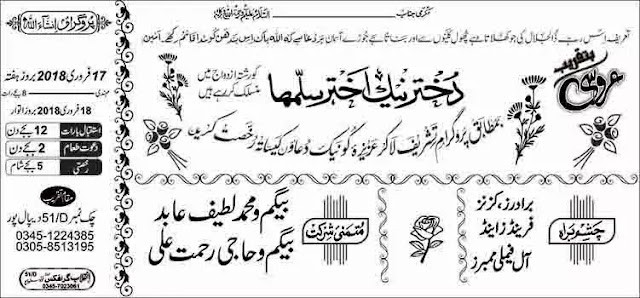 السلام علیکم ورحمۃ اللہ
مکرمی جناب
تعریف اس رب ذوالجلال کی جو کھلاتا ہے پھول نگینوں سے اور بناتا ہے جوڑے آسمان پر دعا ہے کہ اللہ پاک اس بندھن کو سدا قائم رکھے۔ آمین
بتقریب
عروسی
دختر نیک اختر سلمھا
کو رشتہ ازدواج میں
منسلک کر رہے ہیں
بمطابق پروگرام تشریف لا کر عزیزہ کو نیک دعاؤں کیساتھ رخصت کریں
چشم براہ
برادرز، کزنز
فرینڈز اینڈ
آل فیملی ممبرز
متمنی شرکت
بیگم و محمد لطیف عابد
بیگم و حاجی رحمت علی
پروگرام انشاء اللہ
17 فروری 2018 بروز ہفتہ
مہندی 8 بجے رات
18 فروری 2018 بروز اتوار
استقبال بارات 12 بجے دن
دعوت طعام 2 بجے دن
رخصتی 5 بجے شام
مقام تقریب
چک نمبر 51/D دیپال پور
0345-1224385
0305-8513195
انقلاب گرافکس 51/D
0345-7023861